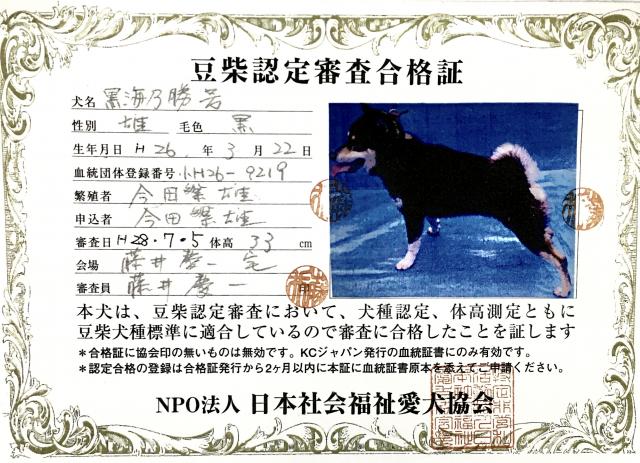 豆柴認定審査合格証
犬名 黒海乃勝号
性別 雄 毛色 黒
生年月日 H26. 年 3 月 22 日
血統団体登録番号 KH26-9219
繁殖者 今田 雄
申込者 今田 雄
審査日 H28.7.5 体高 33 cm
会場 藤井 一 宅
審査員 藤井 一 印
本犬は、豆柴認定審査において、犬種認定、体高測定ともに
豆柴犬種標準に適合しているので審査に合格したことを証します
*合格証に協会印の無いものは無効です。KCジャパン発行の血統証書にのみ有効です。
*認定合格の登録は合格証発行から2ヶ月以内に本証に血統証書原本を添えてご申請ください。
NPO法人 日本社会福祉愛犬協会